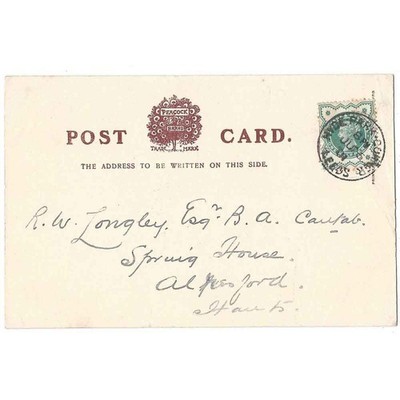 PEACOCK
BRAND
TRADE MARK
POST CARD.
THE ADDRESS TO BE WRITTEN ON THIS SIDE.
R. W. Longley, Esqr B. A. Cantab.
Spring House.
Alresford.
Hants.